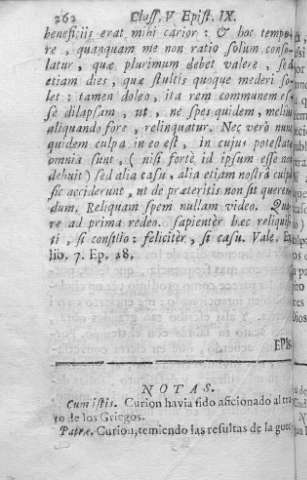 262 Class. V Epist. IX.
beneficiis erat mihi carior: & hoc tempo-
re, quanquam me non ratio solum conso-
latur, quæ plurimum debet valere, sed
etiam dies, quæ stultis quoque mederi so-
let: tamen doleo, ita rem communem es-
se dilapsam, ut, nè spes quidem, melius
aliquando fore, relinquatur. Nec verò nunc
quidem culpa in eo est, in cujus potestate
omnia sunt, (nisi fortè id ipsum esse non
debuit) sed alia casu, alia etiam nostrâ culpâ
sic acciderunt, ut de præteritis non sit queren-
dum. Reliquam spem nullam video. Qua-
re ad prima redeo. sapienter hæc reliquis-
ti, si consilio: feliciter, si casu. Vale.
lio. 7. Ep. 28.
EPIS
NOTAS.
Cum istis. Curion havia sido aficionado al tra-
to de los Griegos.
Patræ. Curion, temiendo las resultas de la gue